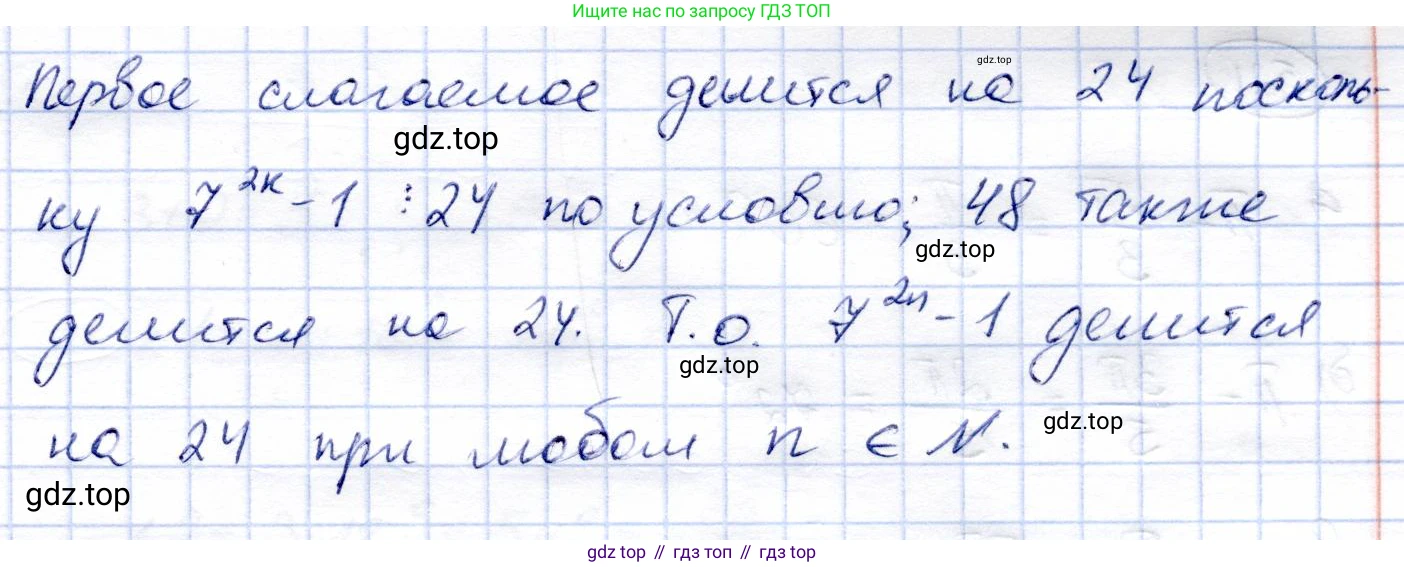 Ищите нас по запросу ГДЗ ТОП
Первое слагаемое делится на 24 посколь-
gdz.top
gdz.top
ку 7^{2k} - 1 ⋮ 24 по условию; 48 также
gdz.top
делится на 24. Т.о. 7^{2n} - 1 делится
gdz.top
на 24 при любом n ∈ N.
gdz.top
gdz.top
gdz top // гдз топ // гдз top